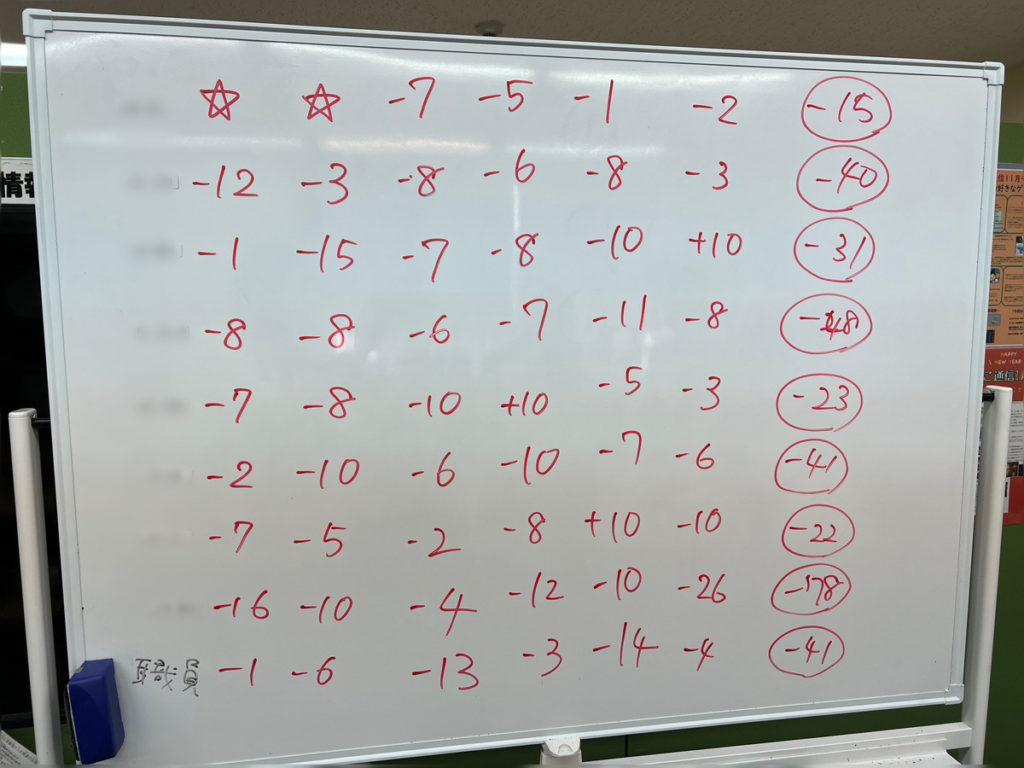 ☆ ☆ -7 -5 -1 -2 -15
-12 -3 -8 -6 -8 -3 -40
-1 -15 -7 -8 -10 +10 -31
-8 -8 -6 -7 -11 -8 -48
-7 -8 -10 +10 -5 -3 -23
-2 -10 -6 -10 -7 -6 -41
-7 -5 -2 -8 +10 -10 -22
-16 -10 -4 -12 -10 -26 -178
職員 -1 -6 -13 -3 -14 -4 -41
情報
HAPPY
NEW YEAR